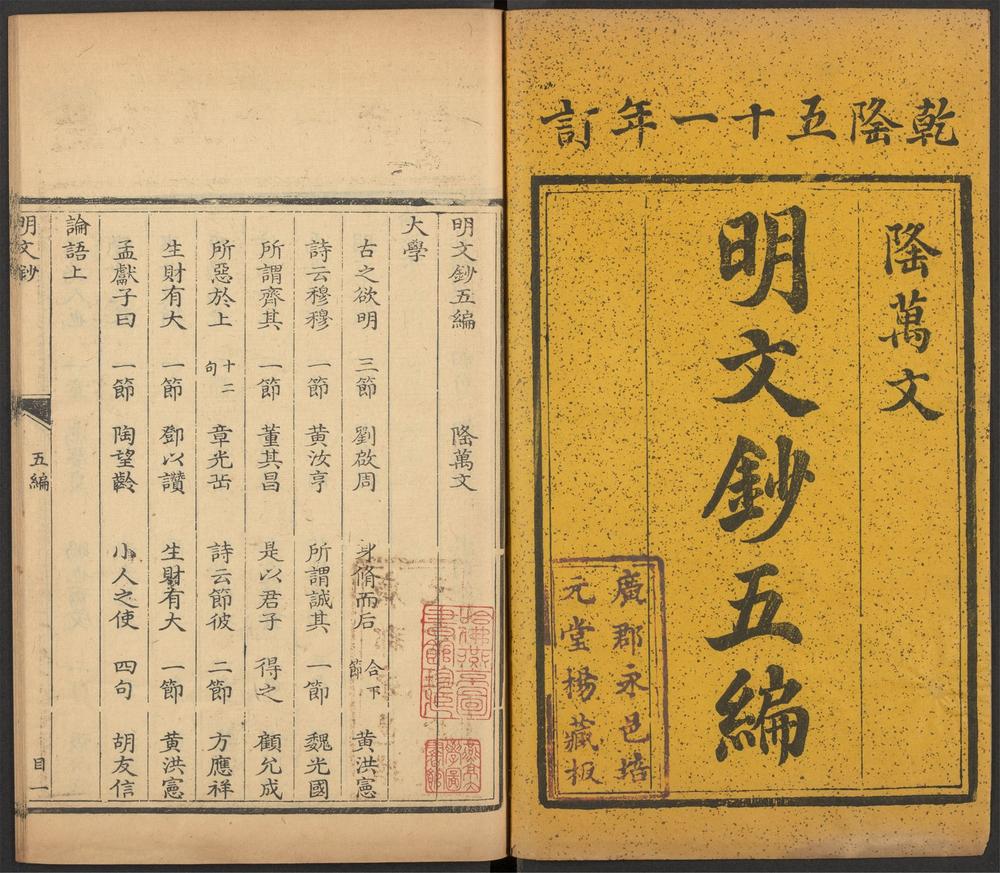 乾隆五十一年訂
隆萬文
明文鈔五編
廣郡永邑培
元堂楊藏板
明文鈔五編 隆萬文
大學
古之欲明 三節 劉啟周 身脩而后 合下節 黃洪憲
詩云穆穆 一節 黃汝亨 所謂誠其 一節 魏光國
所謂齊其 一節 董其昌 是以君子 得之 顧允成
所惡於上 十二句 章光岳 詩云節彼 二節 方應祥
生財有大 一節 鄧以讚 生財有大 一節 黃洪憲
孟獻子曰 一節 陶望齡 小人之使 四句 胡友信
論語上
明文鈔 五編 目 一
哈佛燕京圖書館珍藏